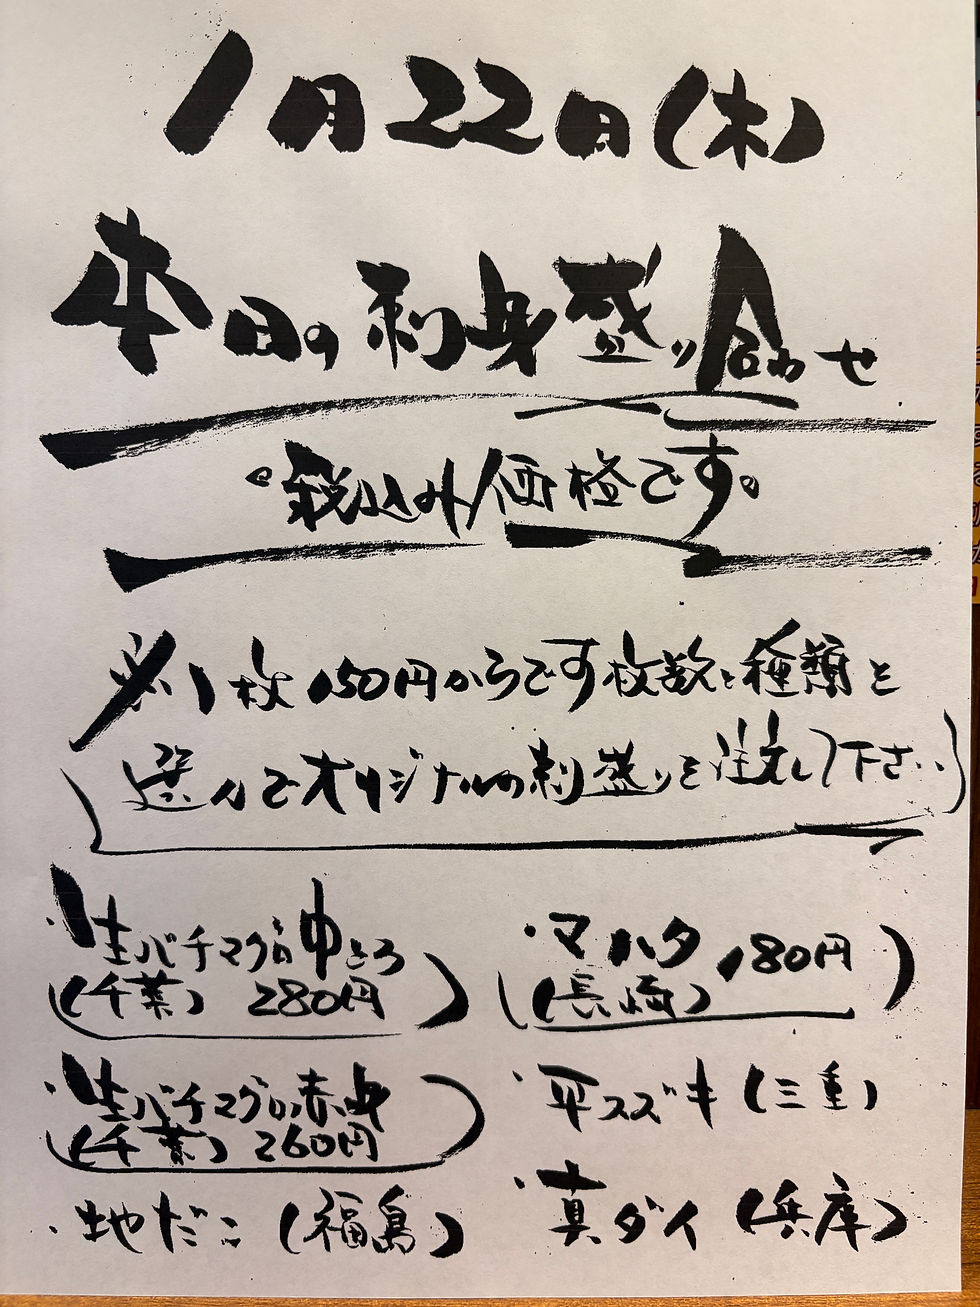 1月22日(木)
本日の刺身盛り合わせ
税込み価格です。
※1枚150円からです枚数と種類を
選んでオリジナルの刺盛りを注文して下さい
・生バチマグロ中とろ
(千葉) 280円
・生バチマグロ赤身
(千葉) 260円
・地だこ(福島)
・マハタ 180円
(長崎)
・平スズキ(三重)
・真ダイ(兵庫)